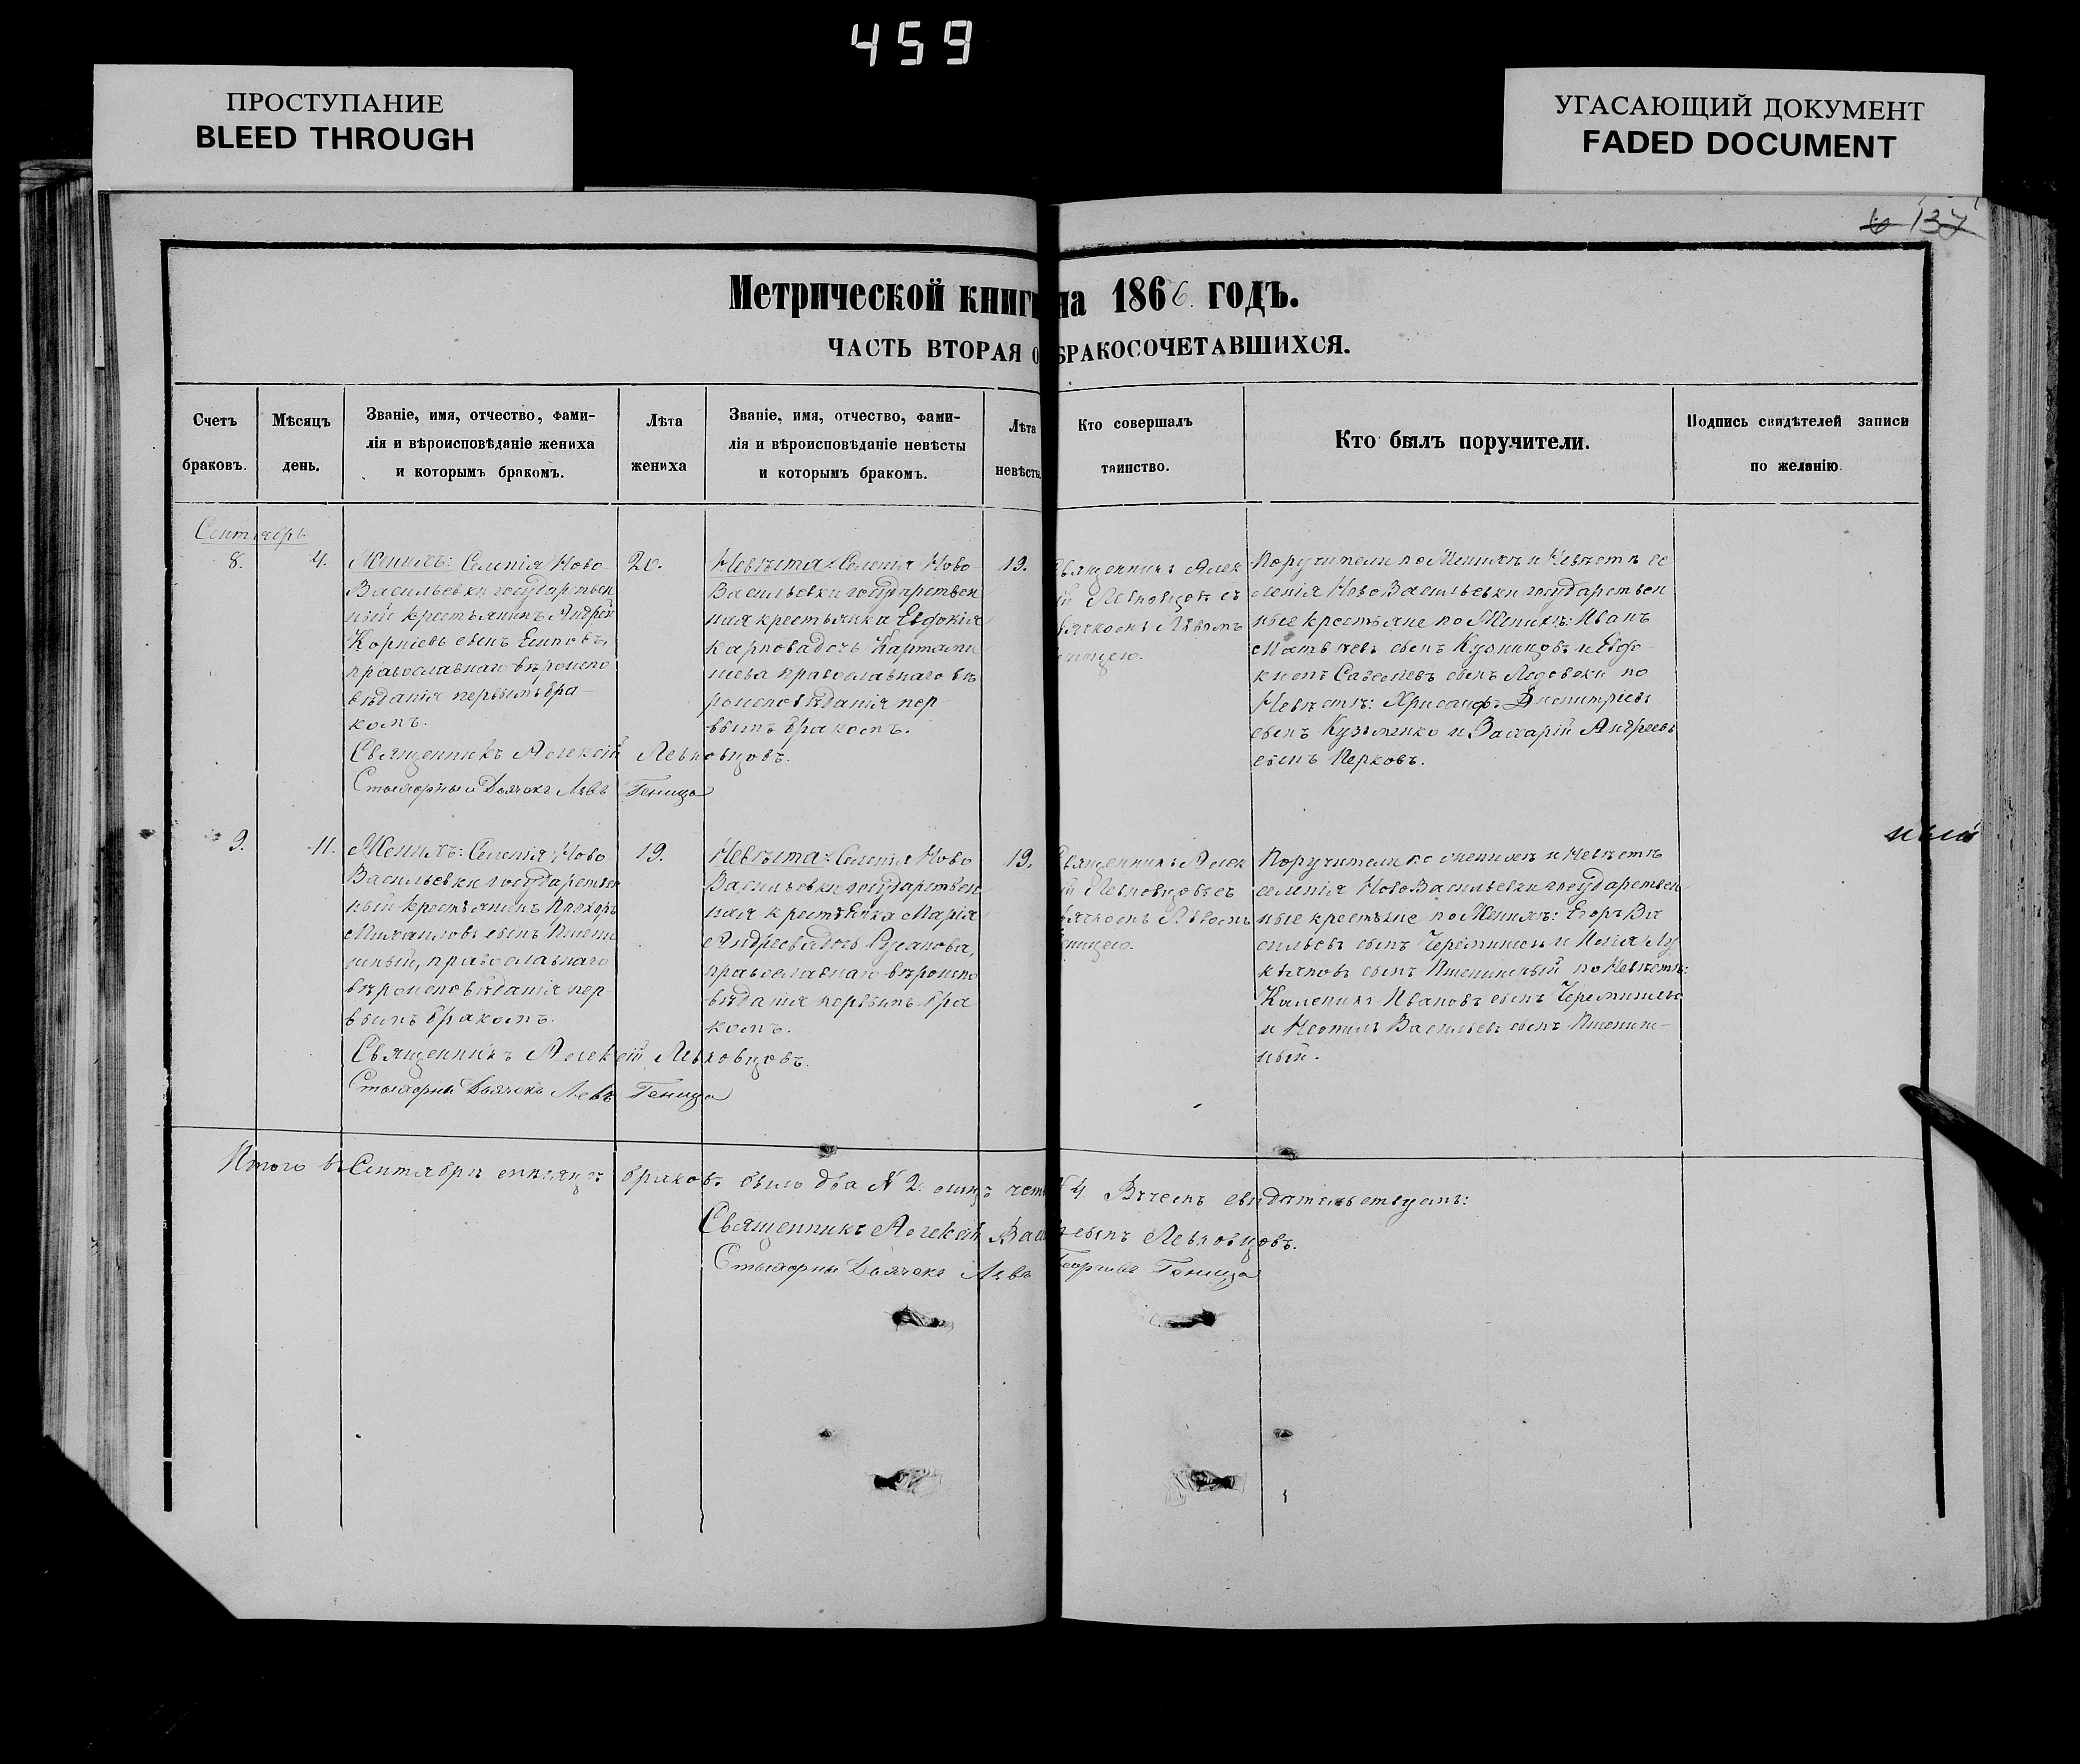 459
ПРОСТУПАНИЕ
BLEED THROUGH
УГАСАЮЩИЙ ДОКУМЕНТ
FADED DOCUMENT
137
Метрической книги на 1866. годъ.
ЧАСТЬ ВТОРАЯ О БРАКОСОЧЕТАВШИХСЯ.
Счетъ
браковъ.
Мѣсяцъ
день.
Званіе, имя, отчество, фами-
лія и вѣроисповѣданіе жениха
и которымъ бракомъ.
Лѣта
жениха
Званіе, имя, отчество, фами-
лія и вѣроисповѣданіе невѣсты
и которымъ бракомъ.
Лѣта
невѣсты
Кто совершалъ
таинство.
Кто былъ поручители.
Подпись свидѣтелей записи
по желанію.
Сентябрь
8.
4.
Женихъ: Селенія Ново-
Васильевки государствен
ный крестьянинъ Андрей
Корніевъ сынъ Есиповъ,
православнаго вѣроиспо
вѣданія первымъ бра-
комъ.
20.
Невѣста: Селенія Ново
Васильевки государствен
ная крестьянка Евдокія
Карпова дочь
православнаго вѣ
роисповѣданія пер
вымъ бракомъ.
19.
Священникъ Алек
ій Левковцовъ съ
дьячкомъ Львомъ
Геницею.
Поручители по Женихѣ и Невѣстѣ се
ленія НовоВасильевки государствен
ные крестьяне по Женихѣ: Иванъ
Матвѣевъ сынъ Кузницовъ и Евдо-
кимъ сынъ по
Невѣстѣ: Хрисанфъ Димитріевъ
сынъ Кузьменко и Андреевъ
сынъ Перковъ.
Священникъ Алексій Левковцовъ.
Стихарный Дьячекъ Левъ Геница
9.
11.
Женихъ: Селенія Ново
Васильевки государствен
ный крестьянинъ Прохоръ
Михаиловъ сынъ Пшени
шный, православнаго
вѣроисповѣданія пер
вымъ бракомъ.
19.
Невѣста: Селенія Ново
Васильевки государствен
ная крестьянка Марія
Андреева дочь Русанова,
православнаго вѣроиспо
вѣданія первымъ бра
комъ.
19.
Священникъ Алек
ій Левковцовъ съ
дьячкомъ Львомъ
Геницею.
Поручители по женихѣ и Невѣстѣ
селенія НовоВасильевки государствен
ные крестьяне по Женихѣ: Егоръ Ва
сильевъ сынъ и Лу
кьяновъ сынъ Пшенишный по Невѣстѣ:
Каленикъ Ивановъ сынъ
и Васильевъ сынъ Пшениш-
ный.
ный
Священникъ Алексій Левковцовъ.
Стихарный Дьячекъ Левъ Геница
Итого въ Сентябрѣ мѣсяцѣ браковъ было два № 2. лицъ чет № 4 Въ чемъ свидѣтельствуемъ:
Священникъ Алексій Вас сынъ Левковцовъ.
Стихарный Дьячекъ Левъ Георгіевъ Геница